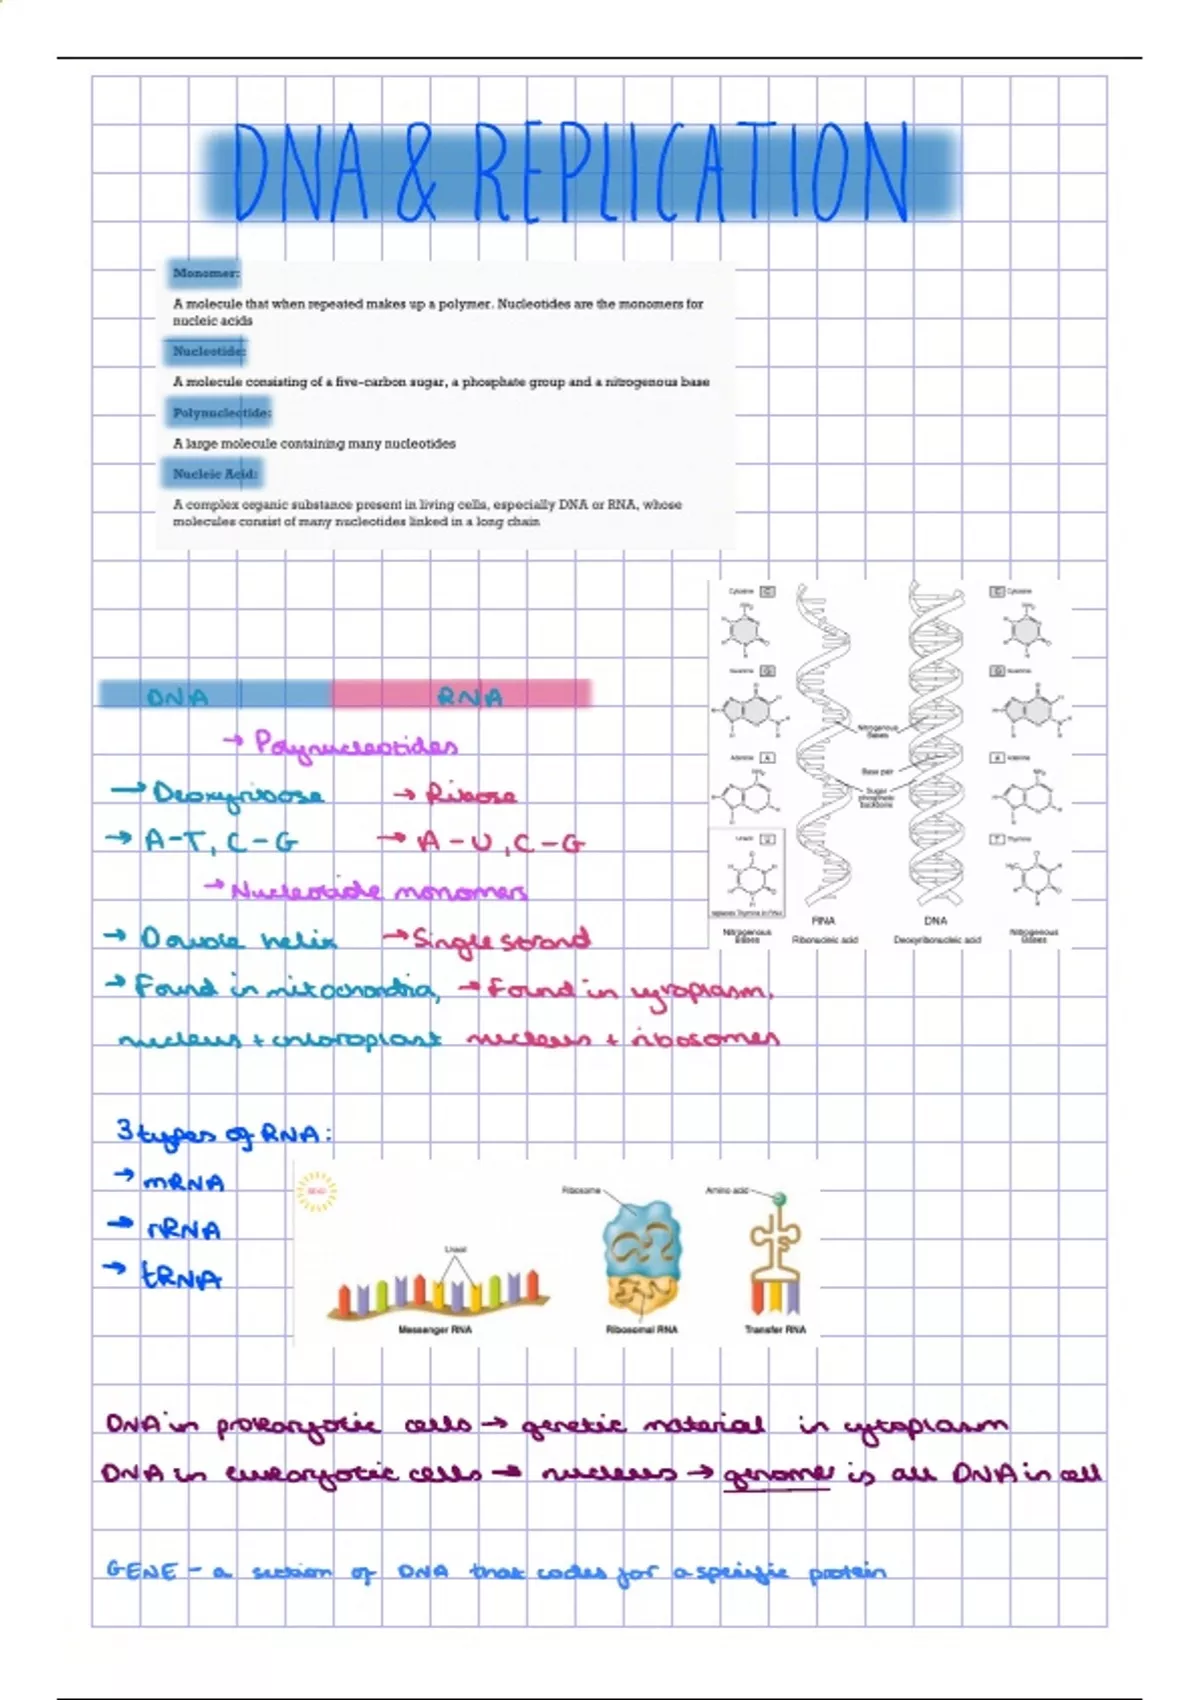 DNA & REPLICATION
Monomer:
A molecule that when repeated makes up a polymer. Nucleotides are the monomers for
nucleic acids
Nucleotide:
A molecule consisting of a five-carbon sugar, a phosphate group and a nitrogenous base
Polynucleotide:
A large molecule containing many nucleotides
Nucleic Acid:
A complex organic substance present in living cells, especially DNA or RNA, whose
molecules consist of many nucleotides linked in a long chain
DNA RNA
→ Polynucleotides
→ Deoxyribose → Ribose
→ A-T, C-G → A-U, C-G
→ Nucleotide monomers
→ Double helix → Single strand
→ Found in mitochondria, → Found in cytoplasm,
nucleus + chloroplast nucleus + ribosomes
Cytosine C
C Cytosine
Guanine G
G Guanine
Nitrogenous
Bases
Adenine A
A Adenine
Base pair
Sugar
phosphate
backbone
Uracil U
T Thymine
replaces Thymine in RNA
Nitrogenous
Bases
RNA
Ribonucleic acid
DNA
Deoxyribonucleic acid
Nitrogenous
Bases
3 types of RNA:
→ mRNA
→ rRNA
→ tRNA
Uracil
Messenger RNA
Ribosome
Ribosomal RNA
Amino acid
Transfer RNA
DNA in prokaryotic cells → genetic material in cytoplasm
DNA in eukaryotic cells → nucleus → genome is all DNA in cell
GENE - a section of DNA that codes for a specific protein